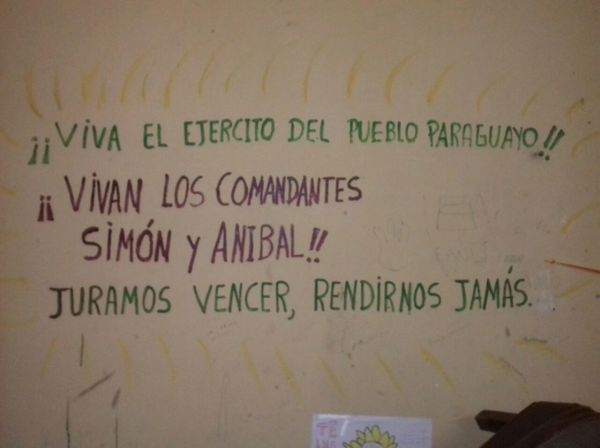 ¡¡VIVA EL EJERCITO DEL PUEBLO PARAGUAYO!!
¡¡VIVAN LOS COMANDANTES
SIMÓN y ANIBAL!!
JURAMOS VENCER, RENDIRNOS JAMÁS.